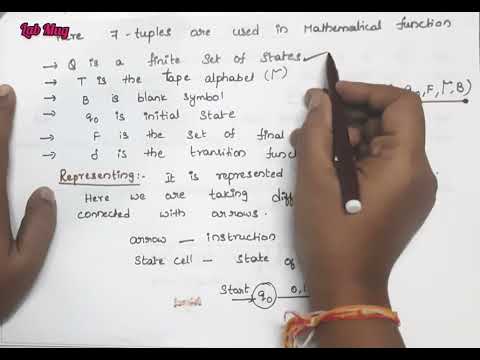 Lab Mug
Here 7-tuples are used in Mathematical function
→ Q is a finite set of states
→ T is the Tape alphabet (Γ)
F, Γ, B)
→ B is blank symbol
→ q0 is initial state
→ F is the set of final
→ δ is the transition func
Representing:- It is represented
Here we are taking diff
connected with arrows.
arrow — instruction
State cell — State of
Start q0 0,1